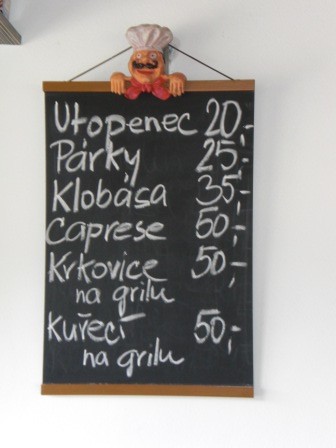 Utopenec 20,-
Párky 25,-
Klobása 35,-
Caprese 50,-
Krkovice 50,-
na grilu
Kuřecí 50,-
na grilu